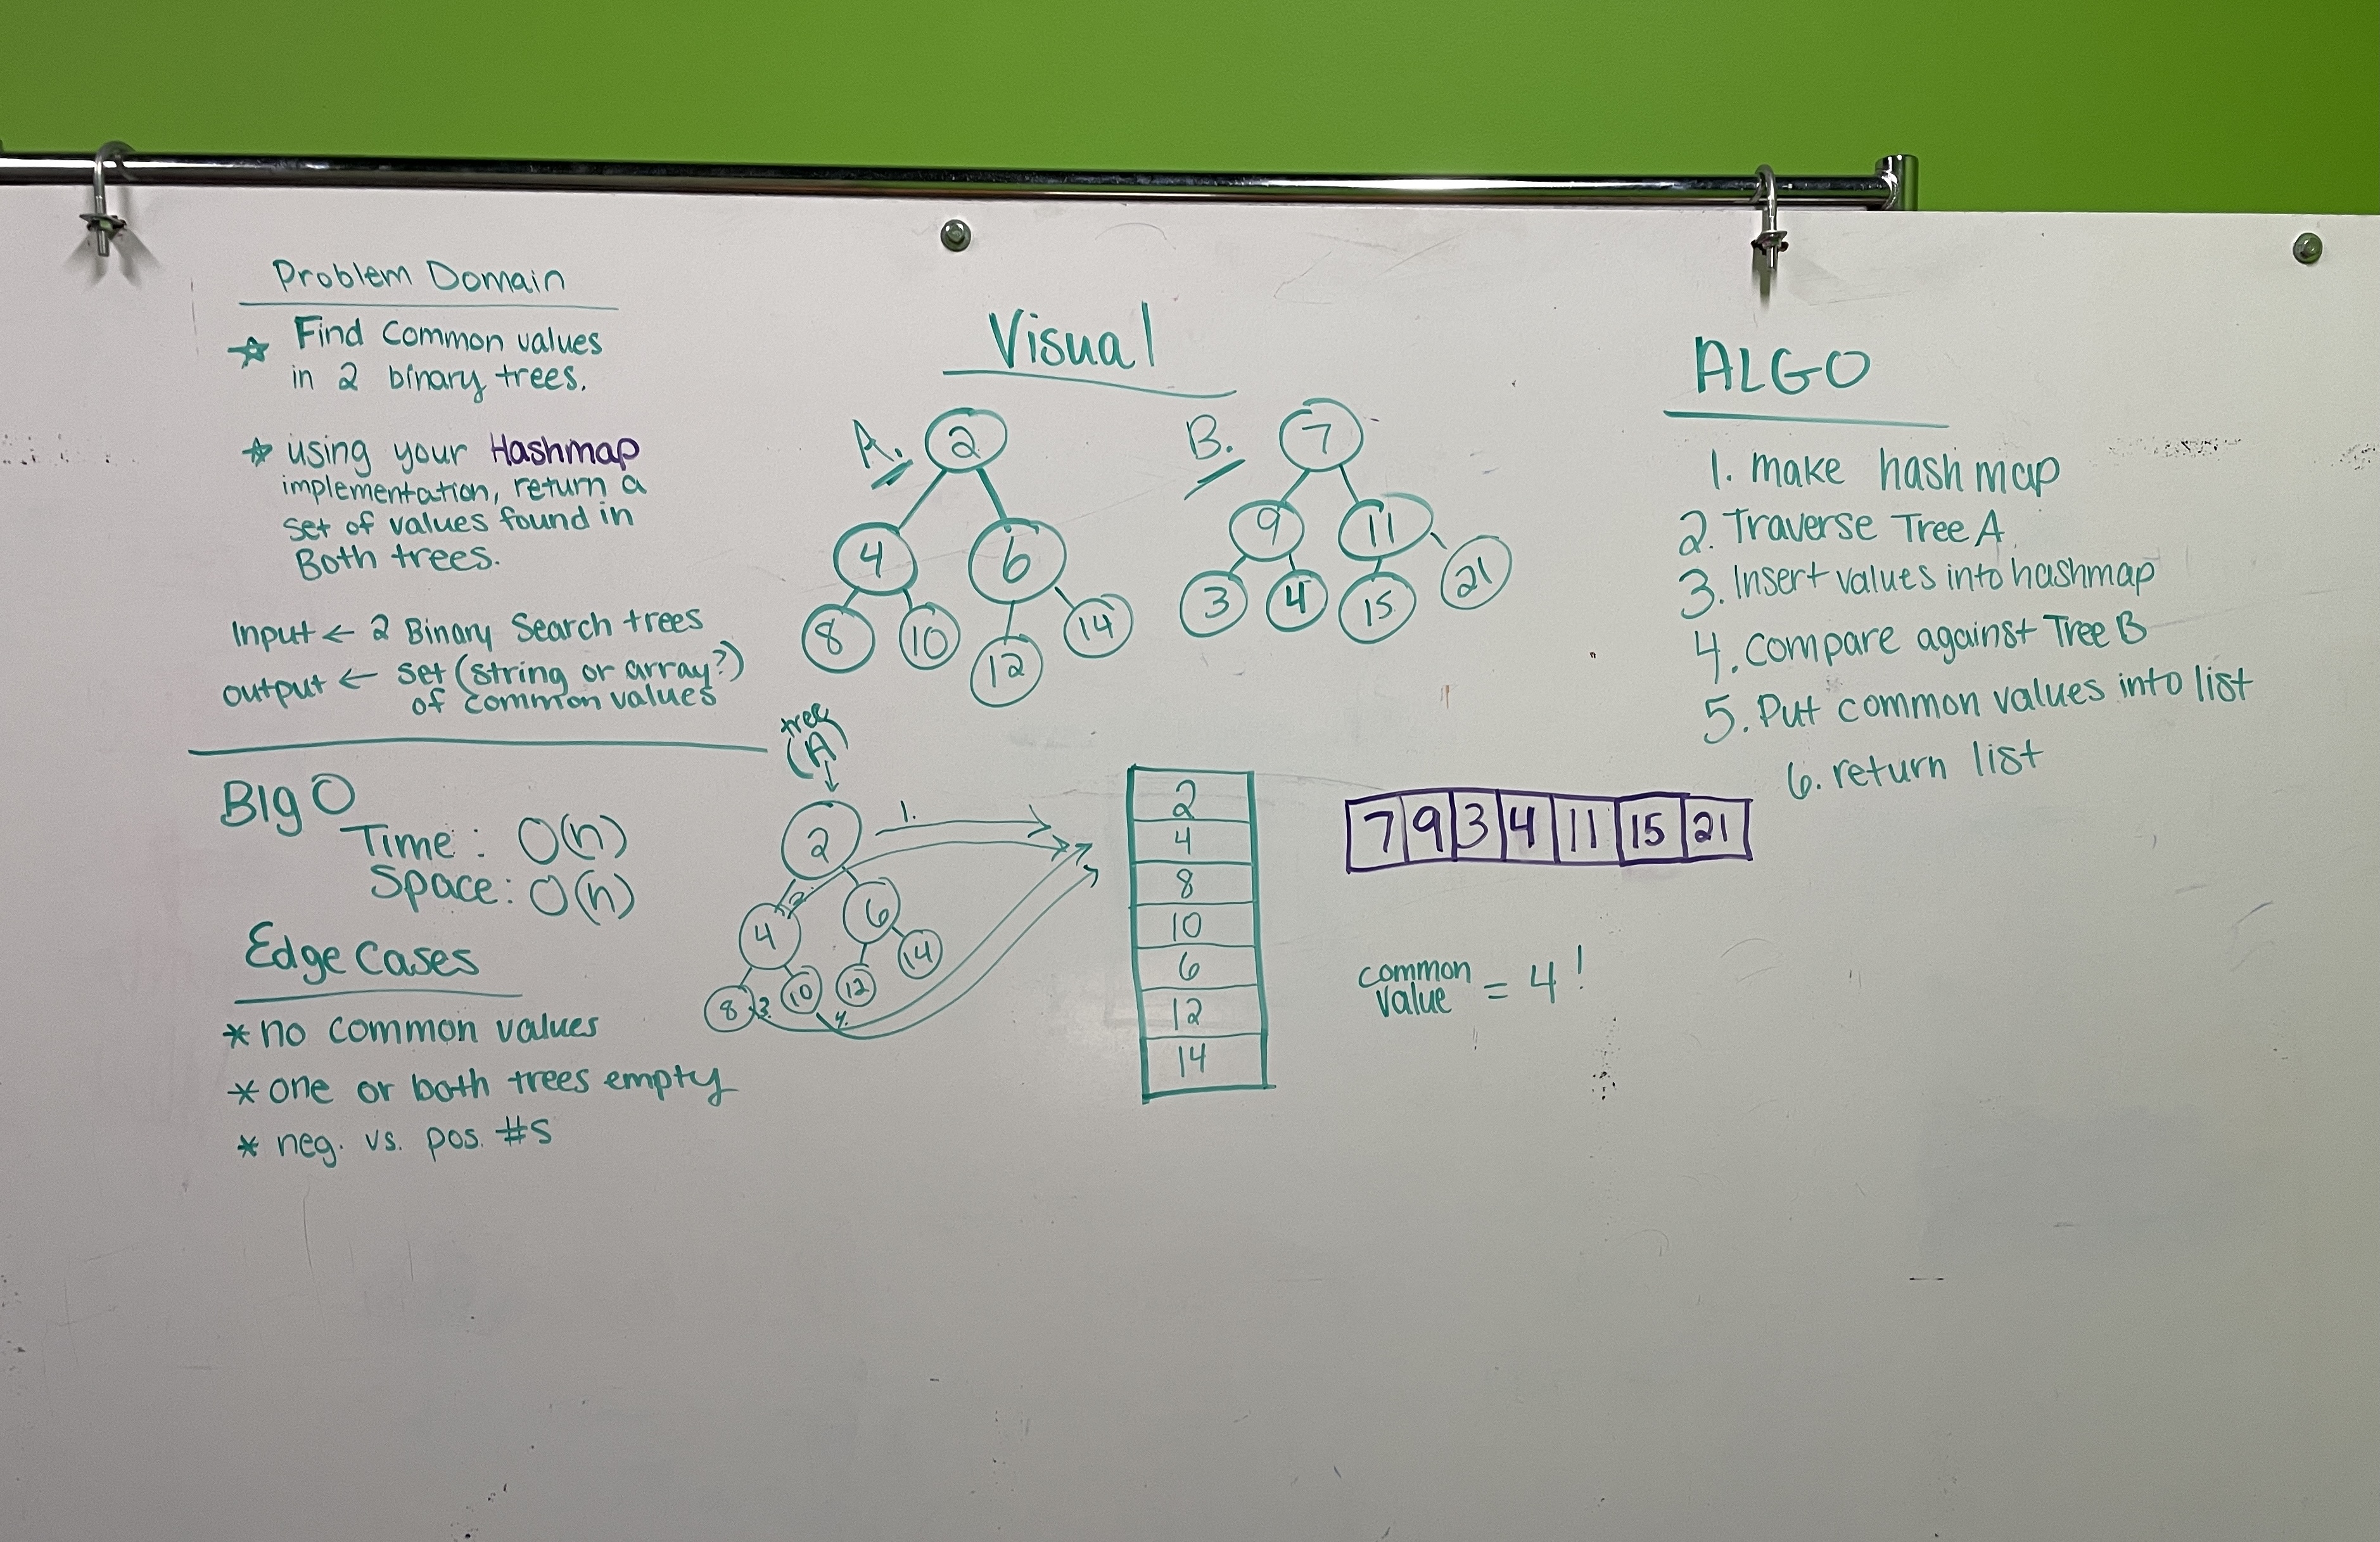 Problem Domain
Find Common values
in 2 binary trees.
using your Hashmap
implementation, return a
set of values found in
Both trees.
Input ← 2 Binary Search trees
output ← set (string or array?)
of common values
Big O
Time: O(n)
Space: O(n)
Edge Cases
* no common values
* one or both trees empty
* neg. vs. pos. #s
Visual
A.
2
4 6
8 10 12 14
B.
7
9 11
3 4 15 21
tree
(A)
↓
2
4 6
8 10 12 14
1.
2.
3.
4.
2
4
8
10
6
12
14
7 9 3 4 11 15 21
common
value = 4!
ALGO
1. make hash map
2. Traverse Tree A
3. Insert values into hashmap
4. compare against Tree B
5. Put common values into list
6. return list